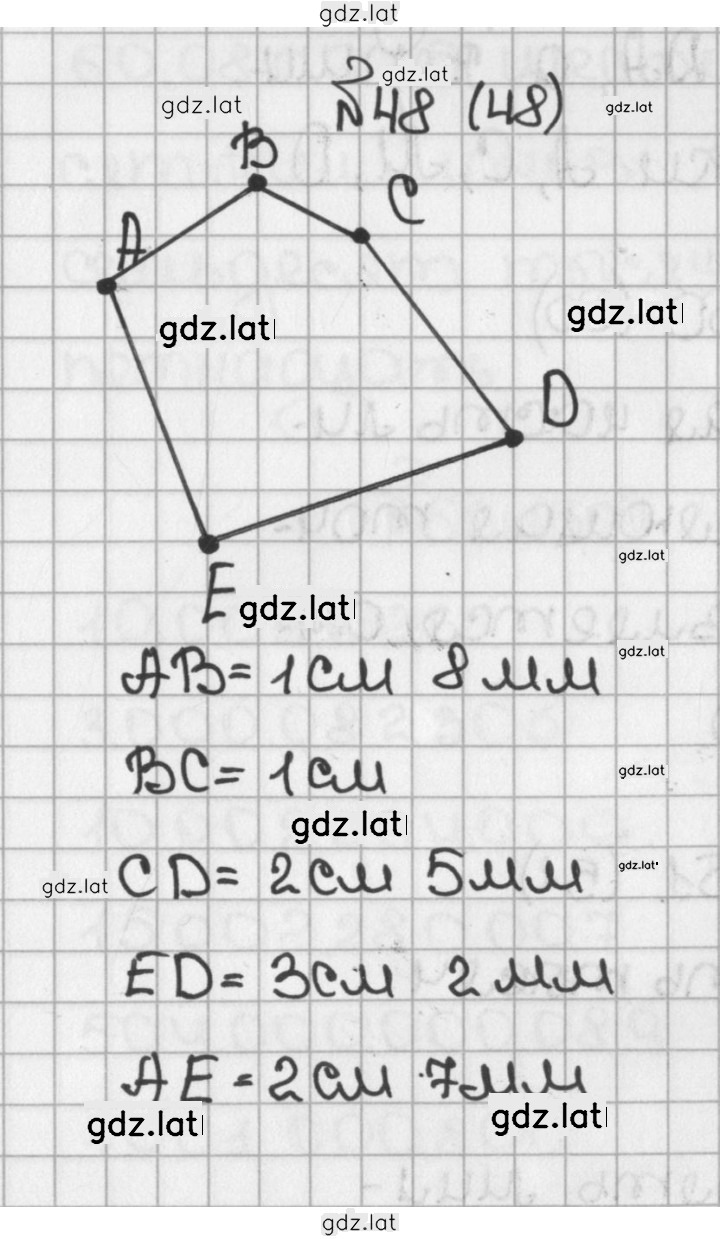 gdz.lat
gdz.lat
gdz.lat №48 (48) gdz.lat
B
C
A
gdz.lat gdz.lat
D
gdz.lat
E gdz.lat
AB = 1 см 8 мм gdz.lat
BC = 1 см gdz.lat
gdz.lat
gdz.lat CD = 2 см 5 мм gdz.lat
ED = 3 см 2 мм
AE = 2 см 7 мм
gdz.lat gdz.lat
gdz.lat